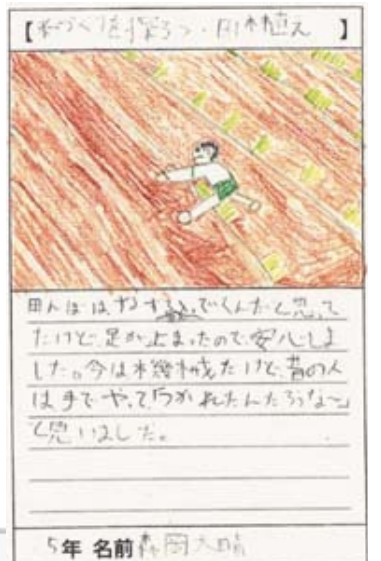 【米づくりを探ろう・田植え】
田んぼは、おすすんでいくんだと思って
たけど、足が止まったので、安心しま
した。今は機械だけど、昔の人
は手でやって「つかれたんだろうな〜」
と思いました。
5年 名前 森岡大晴